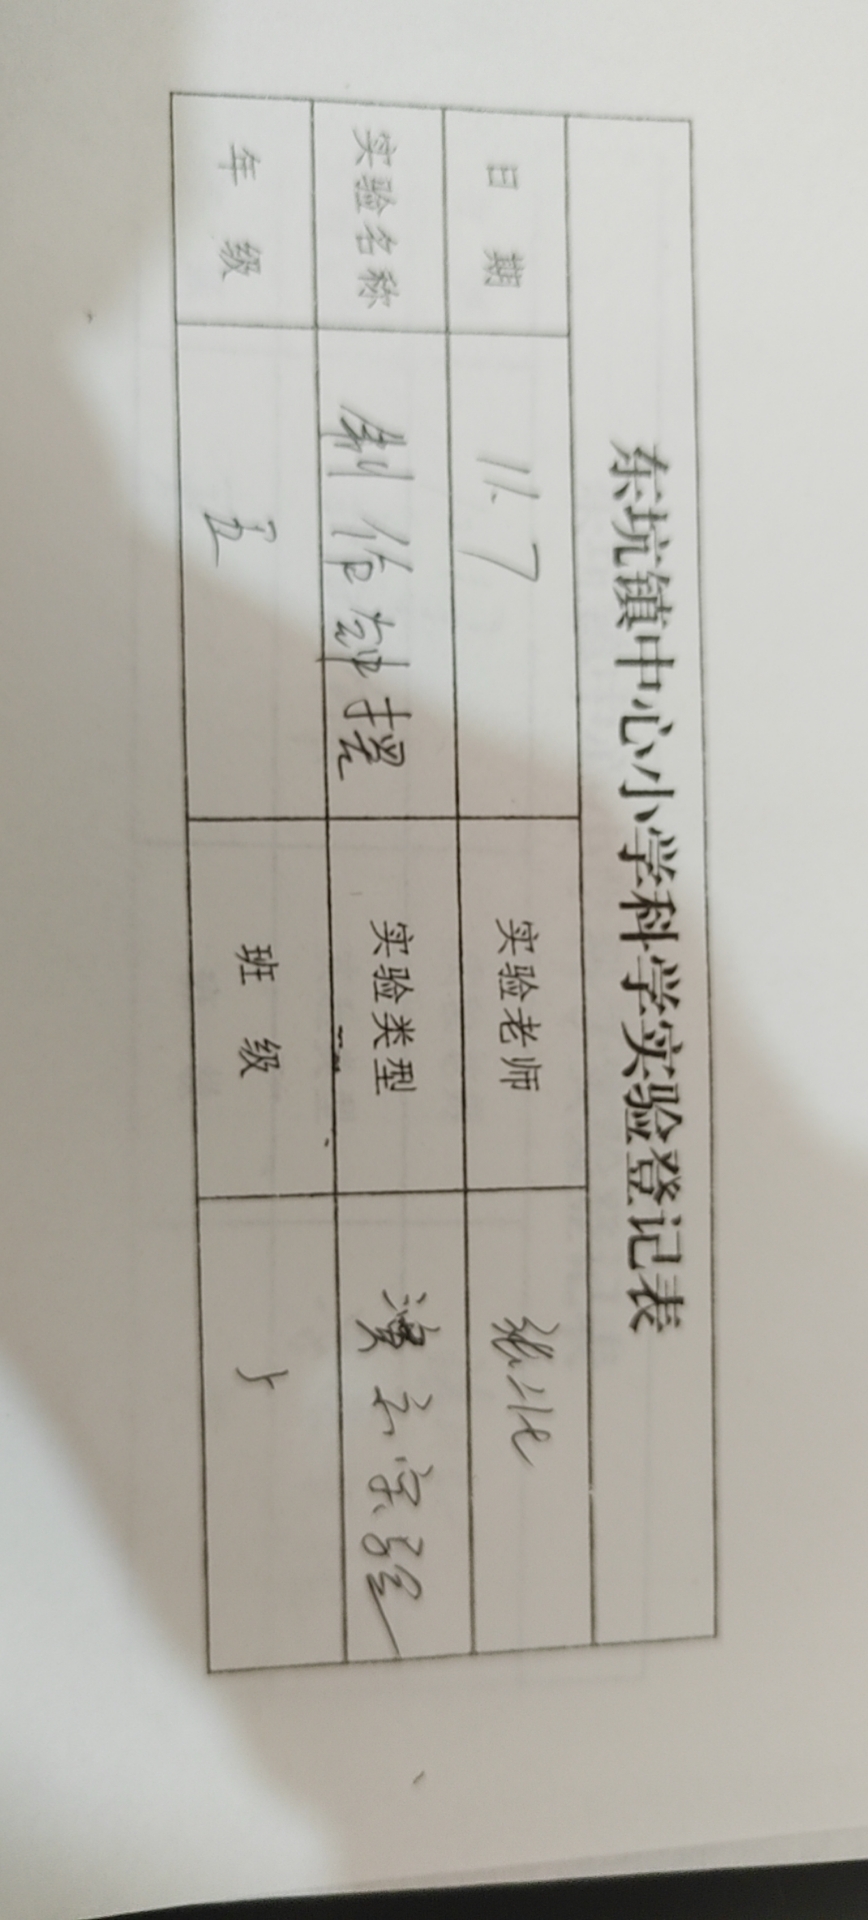 东坑镇中心小学科学实验登记表
日 期 11.7 实验老师
实验名称 制作钟摆 实验类型 演示实验
年 级 五 班 级